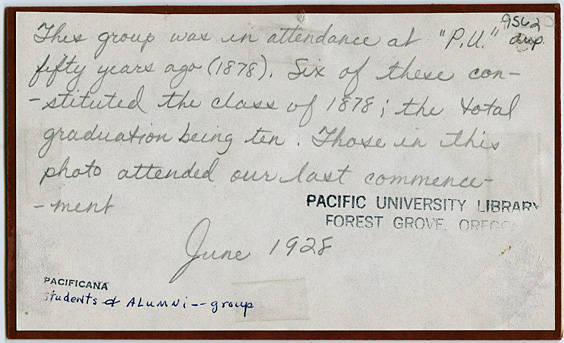 9562
dup.
This group was in attendance at "P.U."
fifty years ago (1878). Six of these con-
-stituted the class of 1878; the total
graduation being ten. Those in this
photo attended our last commence-
-ment
PACIFIC UNIVERSITY LIBRARY
FOREST GROVE, OREGO
June 1928
PACIFICANA
Students & ALUMNI -- group